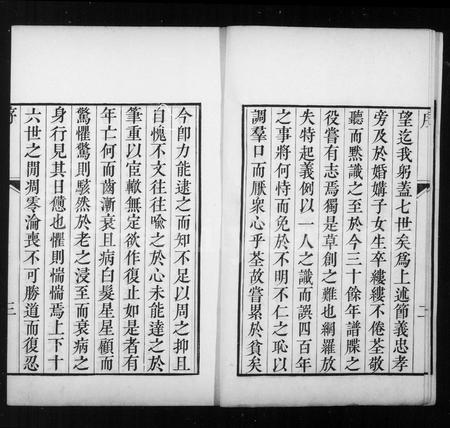 序
二
望迄我躬蓋七世矣爲上述節義忠孝
旁及於婚媾子女生卒縷縷不倦荃敬
聽而默識之至於今三十餘年譜牒之
役嘗有志焉獨是草創之難也網羅放
失特起義例以一人之識而誤四百年
之事將何恃而免於不明不仁之恥以
調羣口而厭衆心乎荃故嘗累於貧矣
今卽力能逮之而知不足以周之抑且
自愧不文往往喻之於心未能達之於
筆重以宦轍無定欲作復止如是者有
年亡何而齒漸衰且病白髮星星顧而
驚懼驚則駭然於老之浸至而衰病之
身行見其日憊也懼則惴惴焉上下十
六世之閒凋零淪喪不可勝道而復忍
序
三